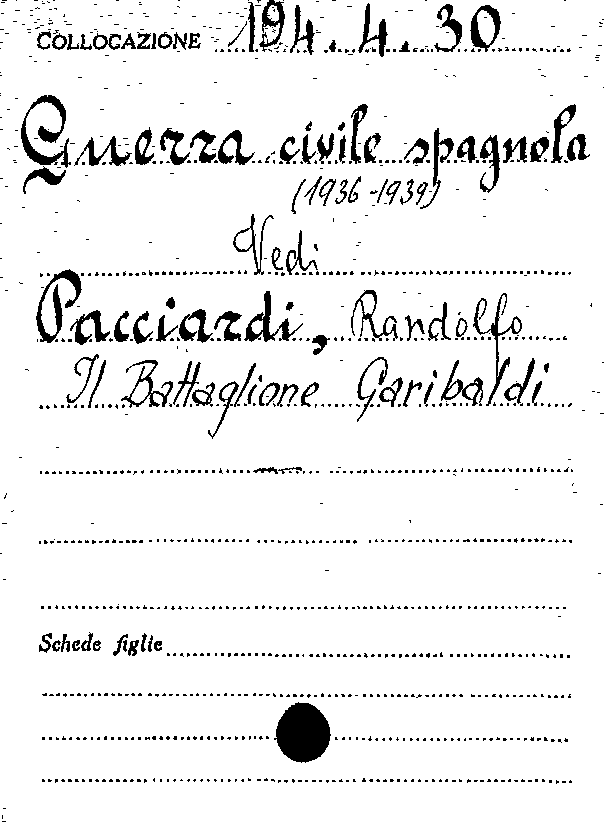 COLLOCAZIONE 194.4.30
Guerra civile spagnola
(1936-1939)
Vedi
Pacciardi, Randolfo
Il Battaglione Garibaldi
Schede figlie